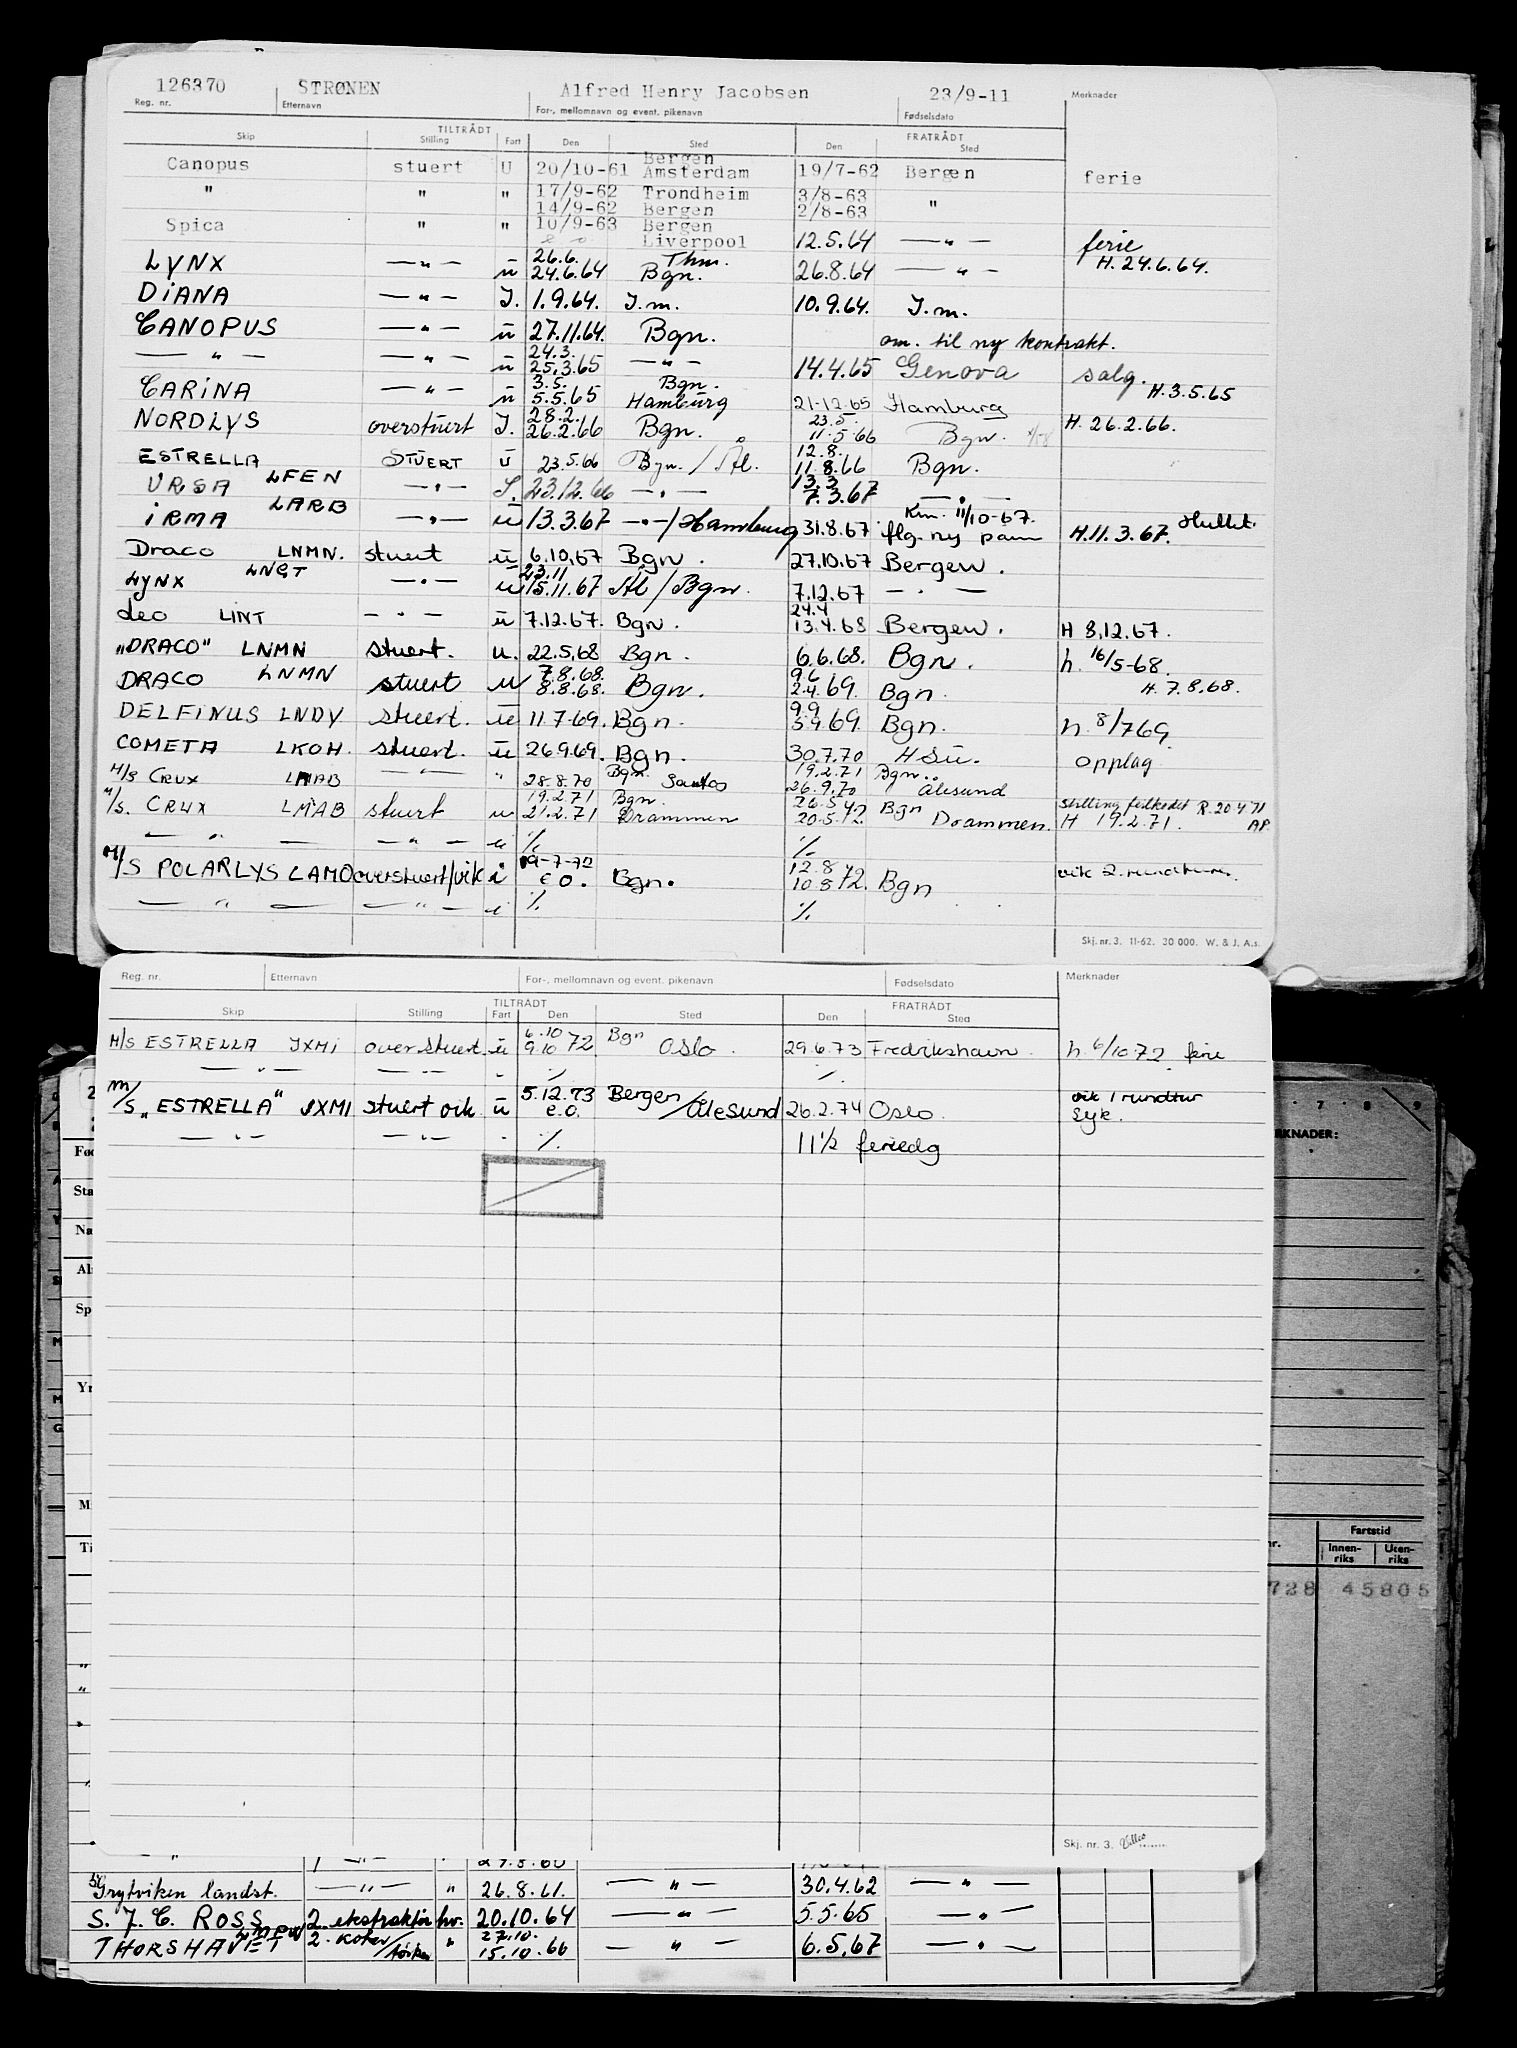 126370 STRØNEN Alfred Henry Jacobsen 23/9-11 Merknader
Reg. nr. Etternavn For-, mellomnavn og event. pikenavn Fødselsdato
TILTRÅDT FRATRÅDT
Skip Stilling Fart Den Sted Den Sted
Bergen
Canopus stuert U 20/10-61 Amsterdam 19/7-62 Bergen ferie
" " " 17/9-62 Trondheim 3/8-63 "
14/9-62 Bergen 2/8-63
Spica " " 10/9-63 Bergen
Liverpool 12.5.64 — " — ferie
LYNX — " — u 26.6. Thm.
24.6.64 Bgn. 26.8.64 — " — H. 24.6.64.
DIANA — " — I. 1.9.64. I.m. 10.9.64 I.m.
CANOPUS — " — u 27.11.64. Bgn. om. til ny kontrakt.
— " — — " — u 24.3.
25.3.65 — " — 14.4.65 Genova salg.
CARINA — " — u 3.5. Bgn.
5.5.65 Hamburg 21-12.65 Hamburg H. 3.5.65
NORDLYS overstuert I. 28.2.
26.2.66 Bgn. 23.5.
11.5.66 Bgn. H. 26.2.66.
ESTRELLA STUERT u 23.5.66 Bgn. / Ål. 12.8.
11.8.66 Bgn.
URSA LFEN — " — I. 23.12.66 — " — 13.3
7.3.67 — " —
IRMA LARB — " — u 13.3.67 — " — / Hamburg 31.8.67 Km. 11/10-67.
flg. ny pam H. 11.3.67. Hullet.
Draco LNMN. stuert u 6.10.67 Bgn. 27.10.67 Bergen.
Lynx LNGT — " — u 23.11
15.11.67 Ål / Bgn. 7.12.67 — " —
Leo LINT — " — u 7.12.67. Bgn. 24.4
13.4.68 Bergen. H 8.12.67.
"DRACO" LNMN stuert. u. 22.5.68 Bgn. 6.6.68. Bgn. h. 16/5-68.
DRACO LNMN stuert u 7.8.68.
8.8.68. Bgn. 9.6
2.4.69. Bgn. H. 7.8.68.
DELFINUS LNDV stuert. u 11.7.69. Bgn. 9.9
5.9.69 Bgn. h. 8/7 69.
COMETA LKOH. stuert. u 26.9.69. Bgn. 30.7.70 HSU. opplag
M/S CRUX LMAB — " — " 28.8.70 Bgn. Santos 19.2.71 Bgn..
26.9.70 Ålesund
M/S. CRUX LMAB stuert u 19.2.71 Bgn.
21.2.71 Drammen 26.5
20.5.72. Bgn Drammen. stilling R. 20471
H 19.2.71. AP.
— " — — " — u ./. ./.
M/S POLARLYS LAMO overstuert/vik i 19-7-72
e.o. Bgn. 12.8
10.8 72. Bgn vik 2.
— " — — " — i ./. ./.
Skj. nr. 3. 11-62. 30 000. W. & J. A.s.
Reg. nr. Etternavn For-, mellomnavn og event. pikenavn Fødselsdato Merknader
TILTRÅDT FRATRÅDT
Skip Stilling Fart Den Sted Den Sted
M/S ESTRELLA JXMI overstuert. u 6.10
9.10 72 Bgn Oslo. 29.6.73 Fredrikshavn. h. 6/10.72 ferie
— " — — " — - ./. ./.
M/S "ESTRELLA" JXMI stuert vik u 5.12.73
e.o. Bergen / Ålesund 26.2.74 Oslo. vik 1 rundtur
syk.
— " — — " — - ./. 11 1/2 feriedg
Skj. nr. 3.
2 7 8 9
RKNADER:
Fø
Sta
Na
Al
Sp
Yr
M
Ti
nr. Fartstid
Innen-
riks Uten-
riks
728 45805
Grytviken landst. — " — " 26.8.61. — " — 30.4.62 — " —
S. J. C. ROSS 2. ekstraktør hv. 20.10.64 — " — 5.5.65 — " —
THORSHAVET 2. koker " 27.10.
15.10.66 — " — 6.5.67 — " —